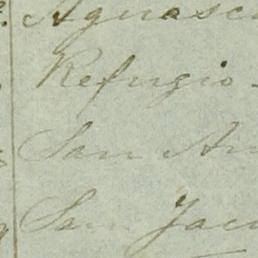 Aguasc
Refugio
San An
San Jac